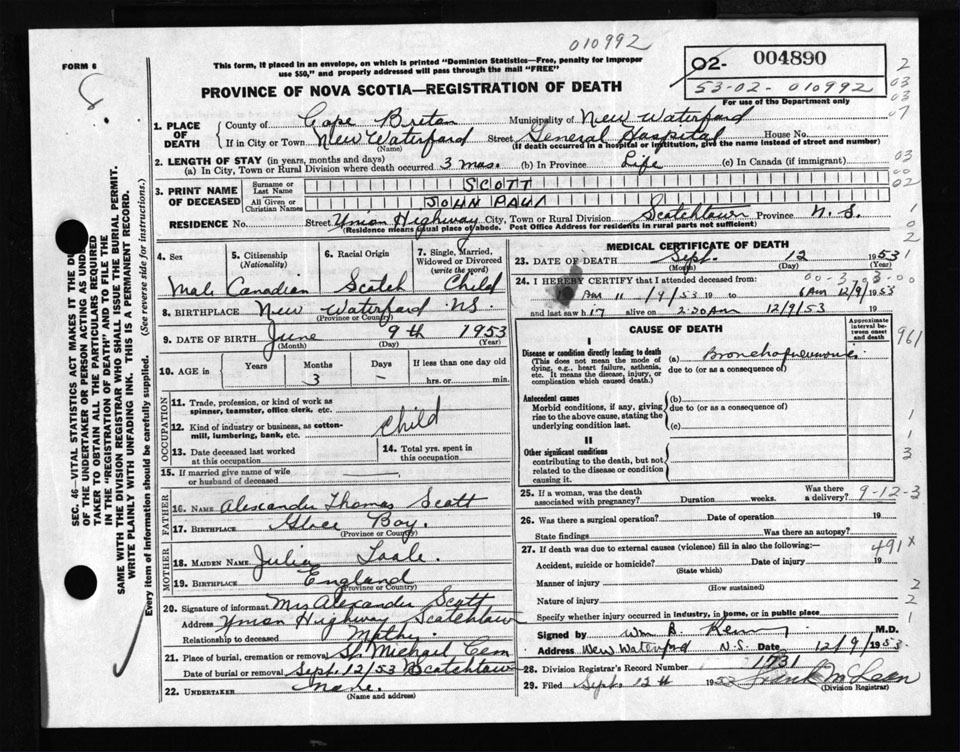 010992
FORM 6
This form, if placed in an envelope, on which is printed "Dominion Statistics—Free, penalty for improper
use $50," and properly addressed will pass through the mail "FREE"
PROVINCE OF NOVA SCOTIA—REGISTRATION OF DEATH
02- 004890
53-02-010992
For use of the Department only
1. PLACE OF DEATH
County of Cape Breton Municipality of New Waterford
If in City or Town New Waterford Street General Hospital House No.
(Name) (If death occurred in a hospital or institution, give the name instead of street and number)
2. LENGTH OF STAY (in years, months and days)
(a) In City, Town or Rural Division where death occurred 3 mos. (b) In Province Life (c) In Canada (if immigrant)
3. PRINT NAME OF DECEASED
Surname or Last Name SCOTT
All Given or Christian Names JOHN PAUL
RESIDENCE No. Street Union Highway City, Town or Rural Division Scotchtown Province N.S.
(Residence means usual place of abode. Post Office Address for residents in rural parts not sufficient)
4. Sex
Male
5. Citizenship
(Nationality)
Canadian
6. Racial Origin
Scotch
7. Single, Married,
Widowed or Divorced
(write the word)
Child
8. BIRTHPLACE New Waterford NS.
(Province or Country)
9. DATE OF BIRTH June 9th 1953
(Month) (Day) (Year)
10. AGE in
Years
Months 3
Days –
If less than one day old
hrs. or min.
OCCUPATION
11. Trade, profession, or kind of work as
spinner, teamster, office clerk, etc.
12. Kind of industry or business, as cotton-
mill, lumbering, bank, etc.
Child
13. Date deceased last worked
at this occupation
14. Total yrs. spent in
this occupation
15. If married give name of wife
or husband of deceased
FATHER
16. NAME Alexander Thomas Scott
17. BIRTHPLACE Glace Bay.
(Province or Country)
MOTHER
18. MAIDEN NAME Julia
19. BIRTHPLACE England
(Province or Country)
20. Signature of informant Mrs Alexander Scott
Address Union Highway Scotchtown
Relationship to deceased Mother
21. Place of burial, cremation or removal St. Michael Cem
Date of burial or removal Sept. 12/53 Scotchtown
22. UNDERTAKER None.
(Name and address)
MEDICAL CERTIFICATE OF DEATH
23. DATE OF DEATH Sept. 12 1953
(Month) (Day) (Year)
24. I HEREBY CERTIFY that I attended deceased from
19 to 6 AM 12/9/1953
and last saw h alive on 2:30 AM 12/9/53 19
CAUSE OF DEATH
Approximate
interval be-
tween onset
and death
I
Disease or condition directly leading to death
(This does not mean the mode of
dying, e.g., heart failure, asthenia,
etc. It means the disease, injury, or
complication which caused death.)
(a) Bronchopneumonia
due to (or as a consequence of)
Antecedent causes
Morbid conditions, if any, giving
rise to the above cause, stating the
underlying condition last.
(b)
due to (or as a consequence of)
(c)
II
Other significant conditions
contributing to the death, but not
related to the disease or condition
causing it.
25. If a woman, was the death
associated with pregnancy? Duration weeks. Was there
a delivery? 9-12-3
26. Was there a surgical operation? Date of operation 19
State findings Was there an autopsy?
27. If death was due to external causes (violence) fill in also the following:— 491x
Accident, suicide or homicide? Date of injury 19
(State which)
Manner of injury
(How sustained)
Nature of injury
Specify whether injury occurred in industry, in home, or in public place
Signed by Wm B. M.D.
Address New Waterford N.S. Date 12/9/1953
28. Division Registrar's Record Number 1731
29. Filed Sept. 12th 1953 Frank McLean
(Division Registrar)
SEC. 46—VITAL STATISTICS ACT MAKES IT THE DU
OF THE UNDERTAKER OR PERSON ACTING AS UNDE
TAKER TO OBTAIN ALL THE PARTICULARS REQUIRED
IN THE "REGISTRATION OF DEATH" AND TO FILE THE
SAME WITH THE DIVISION REGISTRAR WHO SHALL ISSUE THE BURIAL PERMIT.
WRITE PLAINLY WITH UNFADING INK. THIS IS A PERMANENT RECORD.
Every item of information should be carefully supplied. (See reverse side for instructions.)
2
03
03
07
03
00
02
1
02
2
1
961
1
1
3
2
2
1